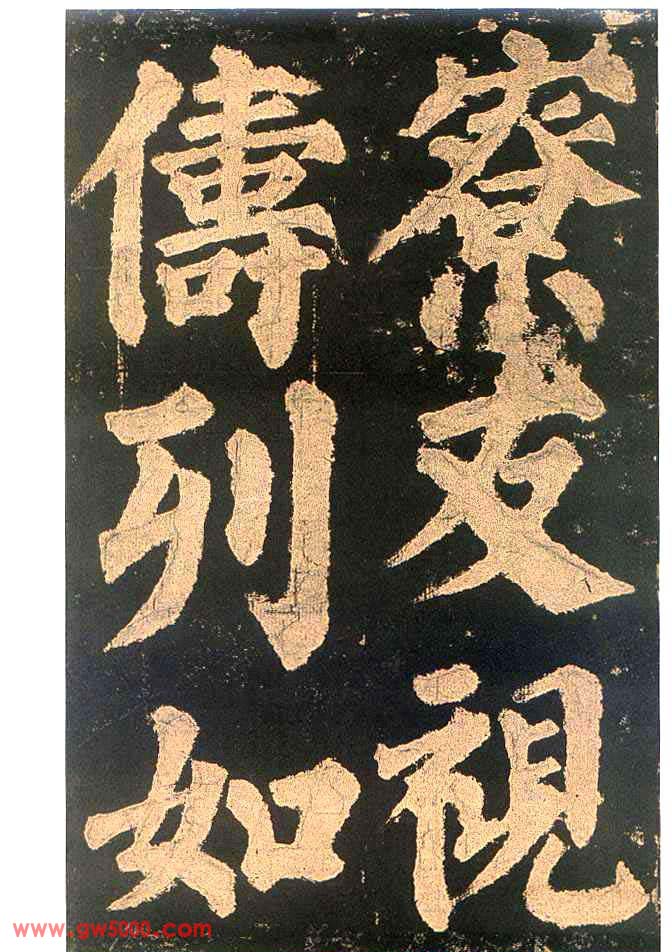 寮友視
儔列如
www.gw5000.com